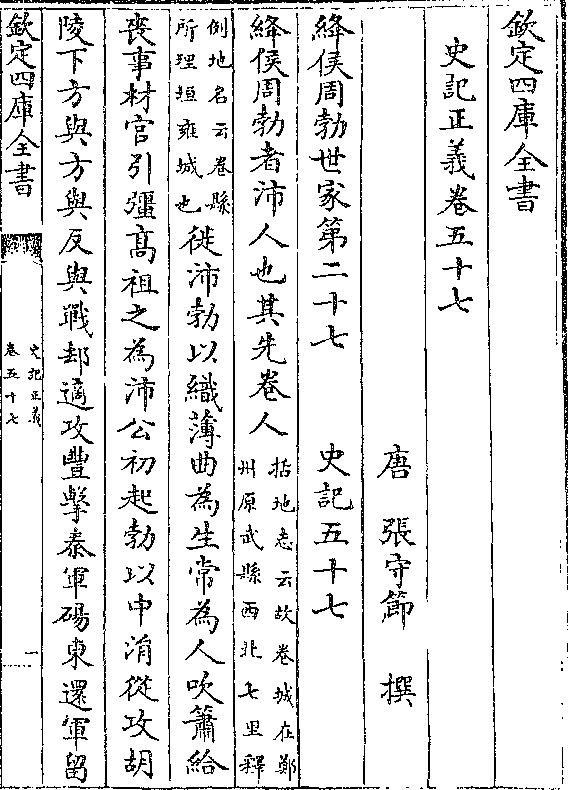 欽定四庫全書
史記正義卷五十七
唐 張守節 撰
絳侯周勃世家第二十七 史記五十七
絳侯周勃者沛人也其先卷人括地志云故卷城在鄭州原武縣西北七里釋
例地名云卷縣所理垣雍城也徙沛勃以織薄曲為生常為人吹簫給
喪事材官引彊高祖之為沛公初起勃以中涓從攻胡
陵下方與方與反與戰却適攻豐擊秦軍碭東還軍留
欽定四庫全書
史記正義
卷五十七
一